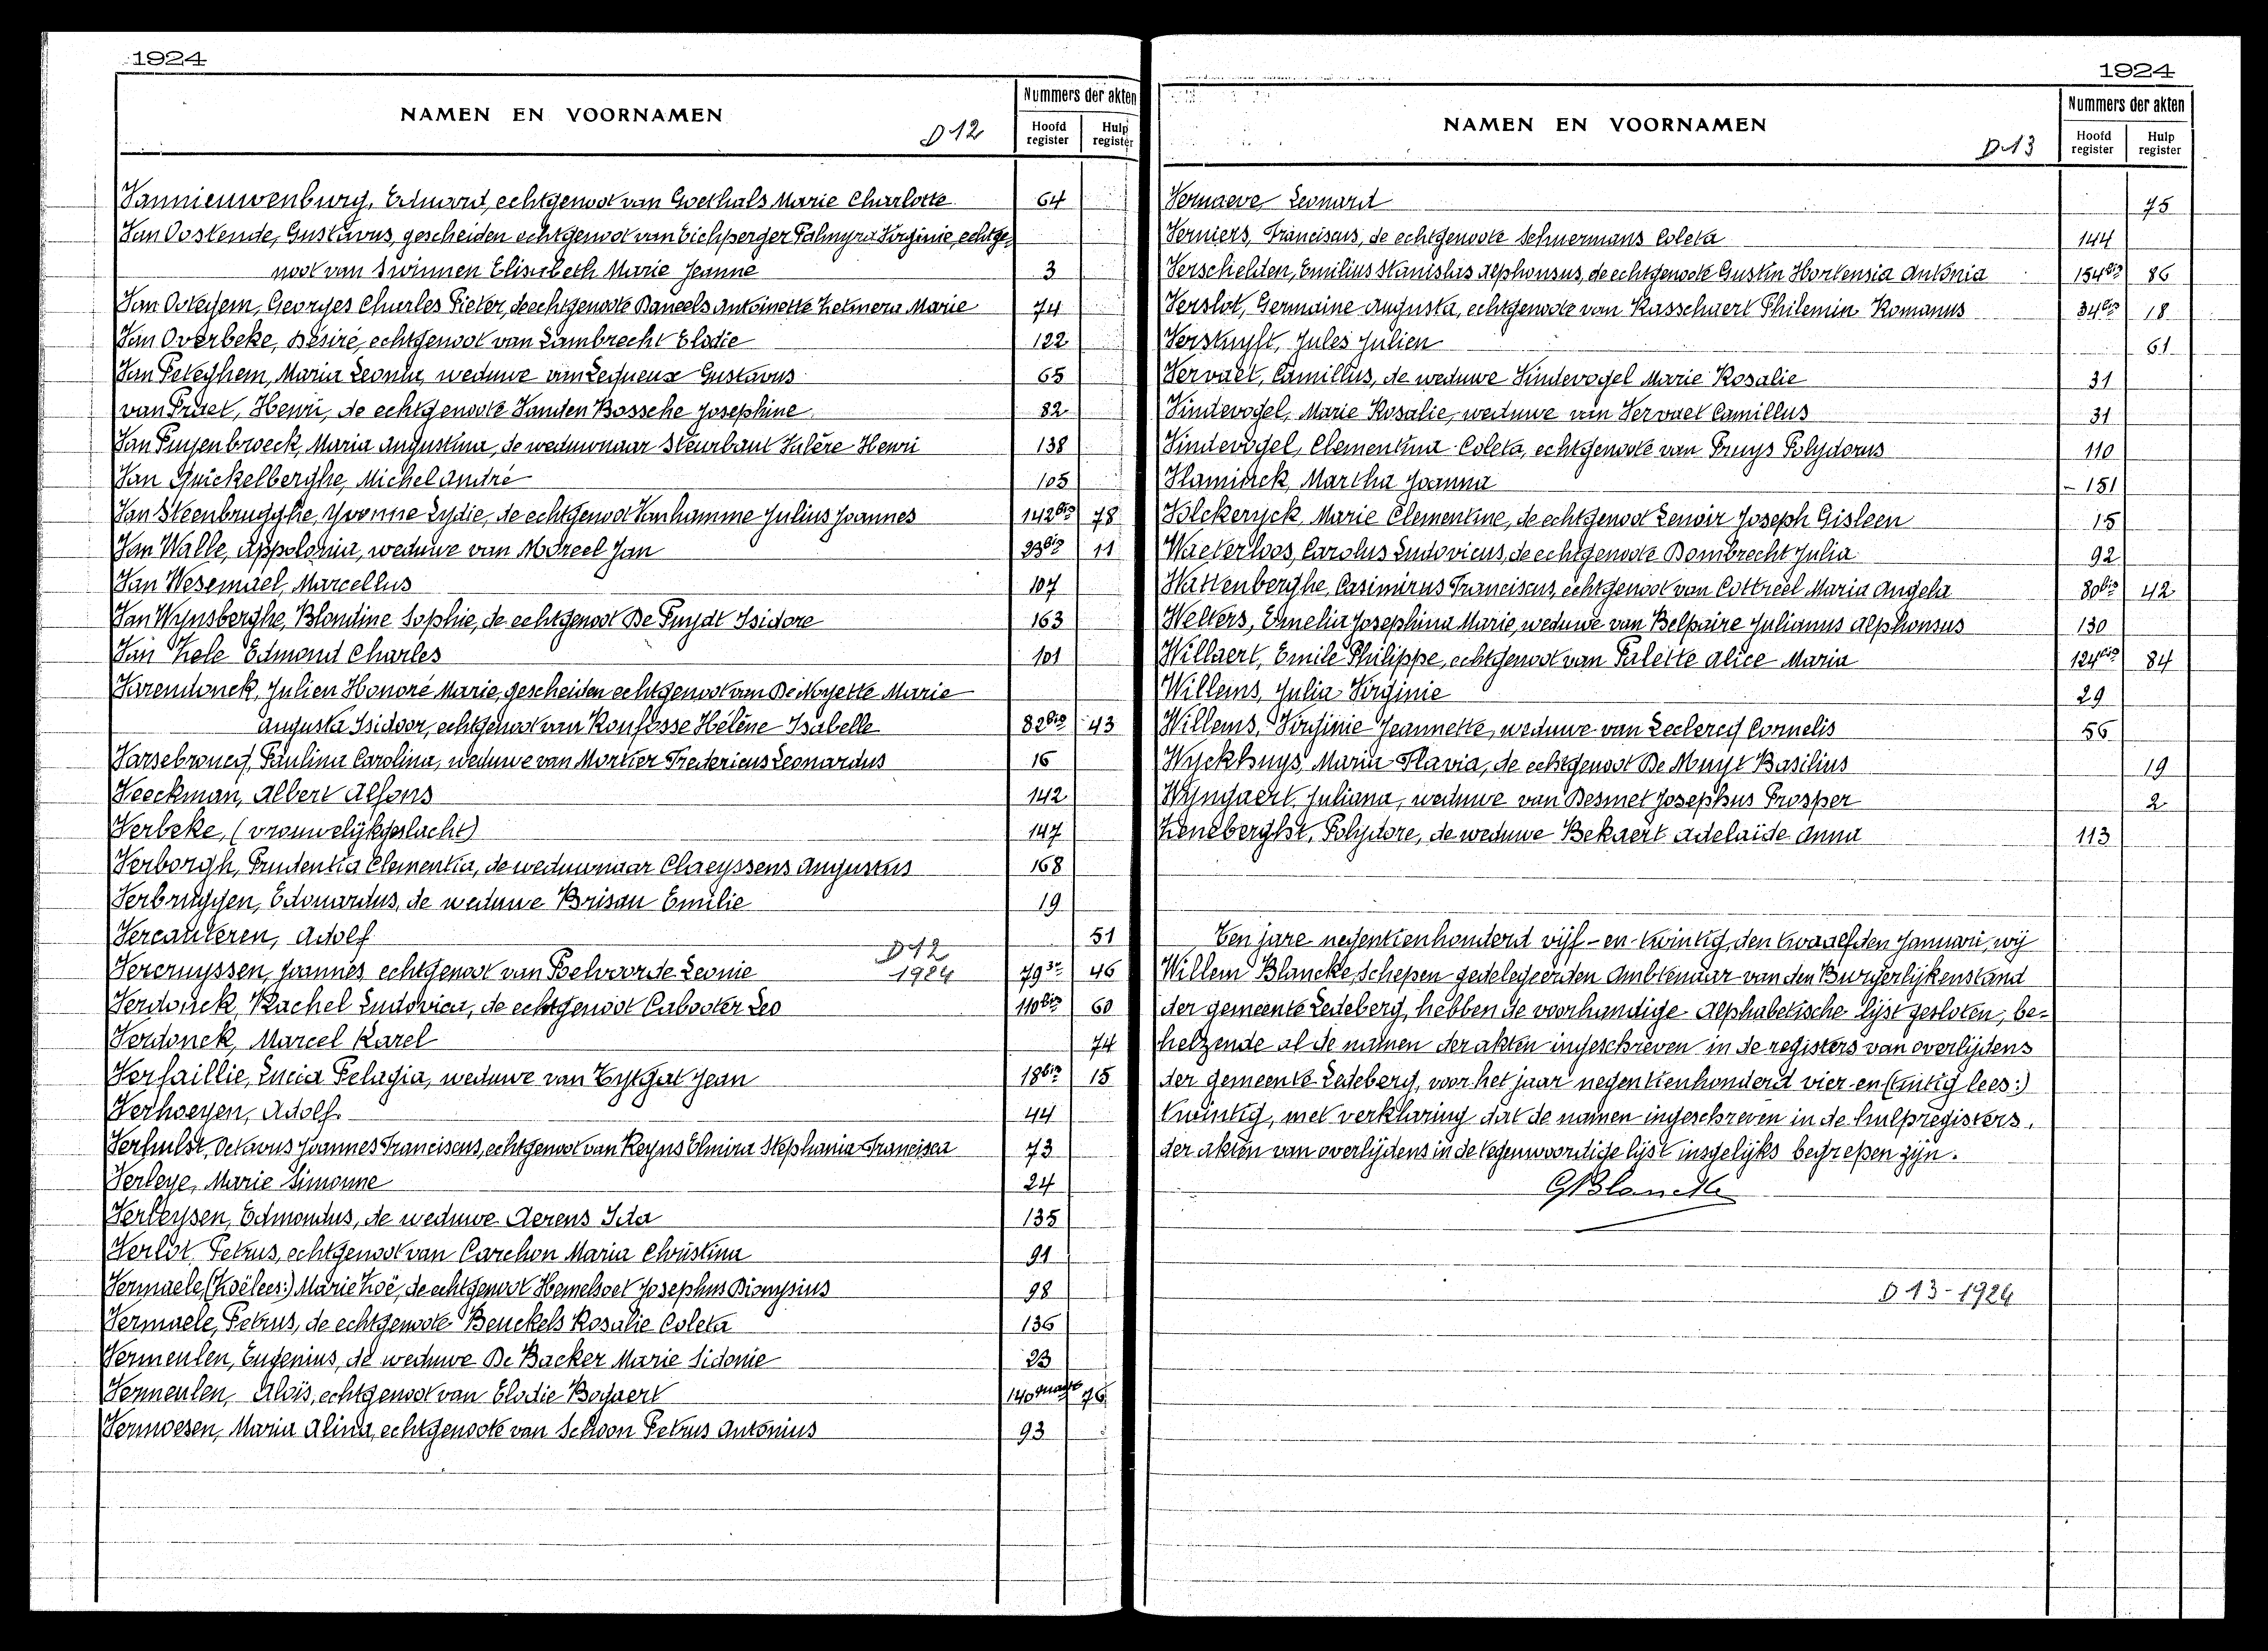 1924
NAMEN EN VOORNAMEN
D 12
Nummers der akten
Hoofd register
Hulp register
Vannieuwenburg, Eduard, echtgenoot van Goethals Marie Charlotte 64
Van Oostende, Gustavus, gescheiden echtgenoot van Eichperger Palmyra Virginie, echtge-
noot van Swinnen Elisabeth Marie Jeanne 3
Van Ooteghem, Georges Charles Pieter, de echtgenoote Daneels Antoinette Zelmera Marie 74
Van Overbeke, Désiré, echtgenoot van Lambrecht Elodie 122
Van Peteghem, Maria Leonia, weduwe van Lequeux Gustavus 65
van Praet, Henri, de echtgenoote Vanden Bossche Josephine 82
Van Puyenbroeck, Maria Augustina, de weduwnaar Steurbaut Valère Henri 138
Van Quickelberghe, Michel André 105
Van Steenbrugghe, Yvonne Lydie, de echtgenoot Vanhamme Julius Joannes 142bis 78
Van Walle, Appolonia, weduwe van Moreel Jan 23bis 11
Van Wesemael, Marcellus 107
Van Wynsberghe, Blondine Sophie, de echtgenoot De Puydt Isidore 163
Van Zele Edmond Charles 101
Varendonck, Julien Honoré Marie, gescheiden echtgenoot van De Moyette Marie
Augusta Isidoor, echtgenoot van Ronfosse Hélène Isabelle 82bis 43
Varsebroucq, Paulina Carolina, weduwe van Mortier Fredericus Leonardus 16
Veeckman, Albert Alfons 142
Verbeke, (vrouwelijkgeslacht) 147
Verborgh, Prudentia Clementia, de weduwnaar Claeyssens Augustus 168
Verbruggen, Edouardus, de weduwe Brisau Emilie 19
Vercauteren, Adolf 51
D 12
1924
Vercruyssen, Joannes echtgenoot van Poelvoorde Leonie 79 46
Verdonck, Rachel Ludovica, de echtgenoot Cabooter Leo 110bis 60
Verdonck, Marcel Karel 74
Verfaillie, Lucia Pelagia, weduwe van Eytgat Jean 18bis 15
Verhoeyen, Adolf. 44
Verhulst, Octavus Joannes Franciscus, echtgenoot van Reyns Elmira Stephania Francisca 73
Verleye, Marie Simonne 24
Verleysen, Edmondus, de weduwe Aerens Ida 135
Verlot, Petrus, echtgenoot van Carchon Maria Christina 91
Vermaele, (Zoëlees:) Marie Zoë, de echtgenoot Hemelsoet Josephus Dionysius 98
Vermaele, Petrus, de echtgenoote Beuckels Rosalie Coleta 136
Vermeulen, Eugenius, de weduwe De Backer Marie Sidonie 23
Vermeulen, Aloïs, echtgenoot van Elodie Bogaert 140 76
Vermoesen, Maria Alina, echtgenoote van Schoon Petrus Antonius 93
1924
NAMEN EN VOORNAMEN
D 13
Nummers der akten
Hoofd register
Hulp register
Vernaeve Leonard 75
Verniers, Franciscus, de echtgenoote Schuermans Coleta 144
Verschelden, Emilius Stanislas Alphonsus, de echtgenoote Gustin Hortensia Antonia 154bis 86
Verslot, Germaine Augusta, echtgenoote van Rasschaert Philemin Romanus 34bis 18
Verstuyft, Jules Julien 61
Vervaet, Camillus, de weduwe Vindevogel Marie Rosalie 31
Vindevogel, Marie Rosalie, weduwe van Vervaet Camillus 31
Vindevogel, Clementina Coleta, echtgenoote van Pruys Polydorus 110
Vlaminck, Martha Joanna - 151
Volckeryck, Marie Clementine, de echtgenoot Lenoir Joseph Gisleen 15
Waeterloos, Carolus Ludovicus, de echtgenoote Dombrecht Julia 92
Wattenberghe, Casimirus Franciscus, echtgenoot van Cottreel Maria Angela 80bis 42
Welters, Emelia Josephina Marie, weduwe van Belpaire Julianus Alphonsus 130
Willaert, Emile Philippe, echtgenoot van Palette Alice Maria 124bis 84
Willems, Julia Virginie 29
Willems, Virginie Jeannette, weduwe van Leclercq Cornelis 56
Wyckhuys, Maria Flavia, de echtgenoot De Muyt Basilius 19
Wyngaert, Juliana, weduwe van Desmet Josephus Prosper 2
Zeneberght, Polydore, de weduwe Bekaert Adelaïde Anna 113
Ten jare negentienhonderd vijf-en-twintig, den twaalfden Januari, wij
Willem Blancke, Schepen gedelegeerden Ambtenaar van den Burgerlijkenstand
der gemeente Ledeberg, hebben de voorhandige Alphabetische lijst gesloten, be-
helzende al de namen der akten ingeschreven in de registers van overlijdens
der gemeente Ledeberg, voor het jaar negentienhonderd vier-en-(tintig lees:)
twintig, met verklaring dat de namen ingeschreven in de hulpregisters,
der akten van overlijdens in de tegenwoordige lijst insgelijks begrepen zijn.
GBlancke
D 13-1924